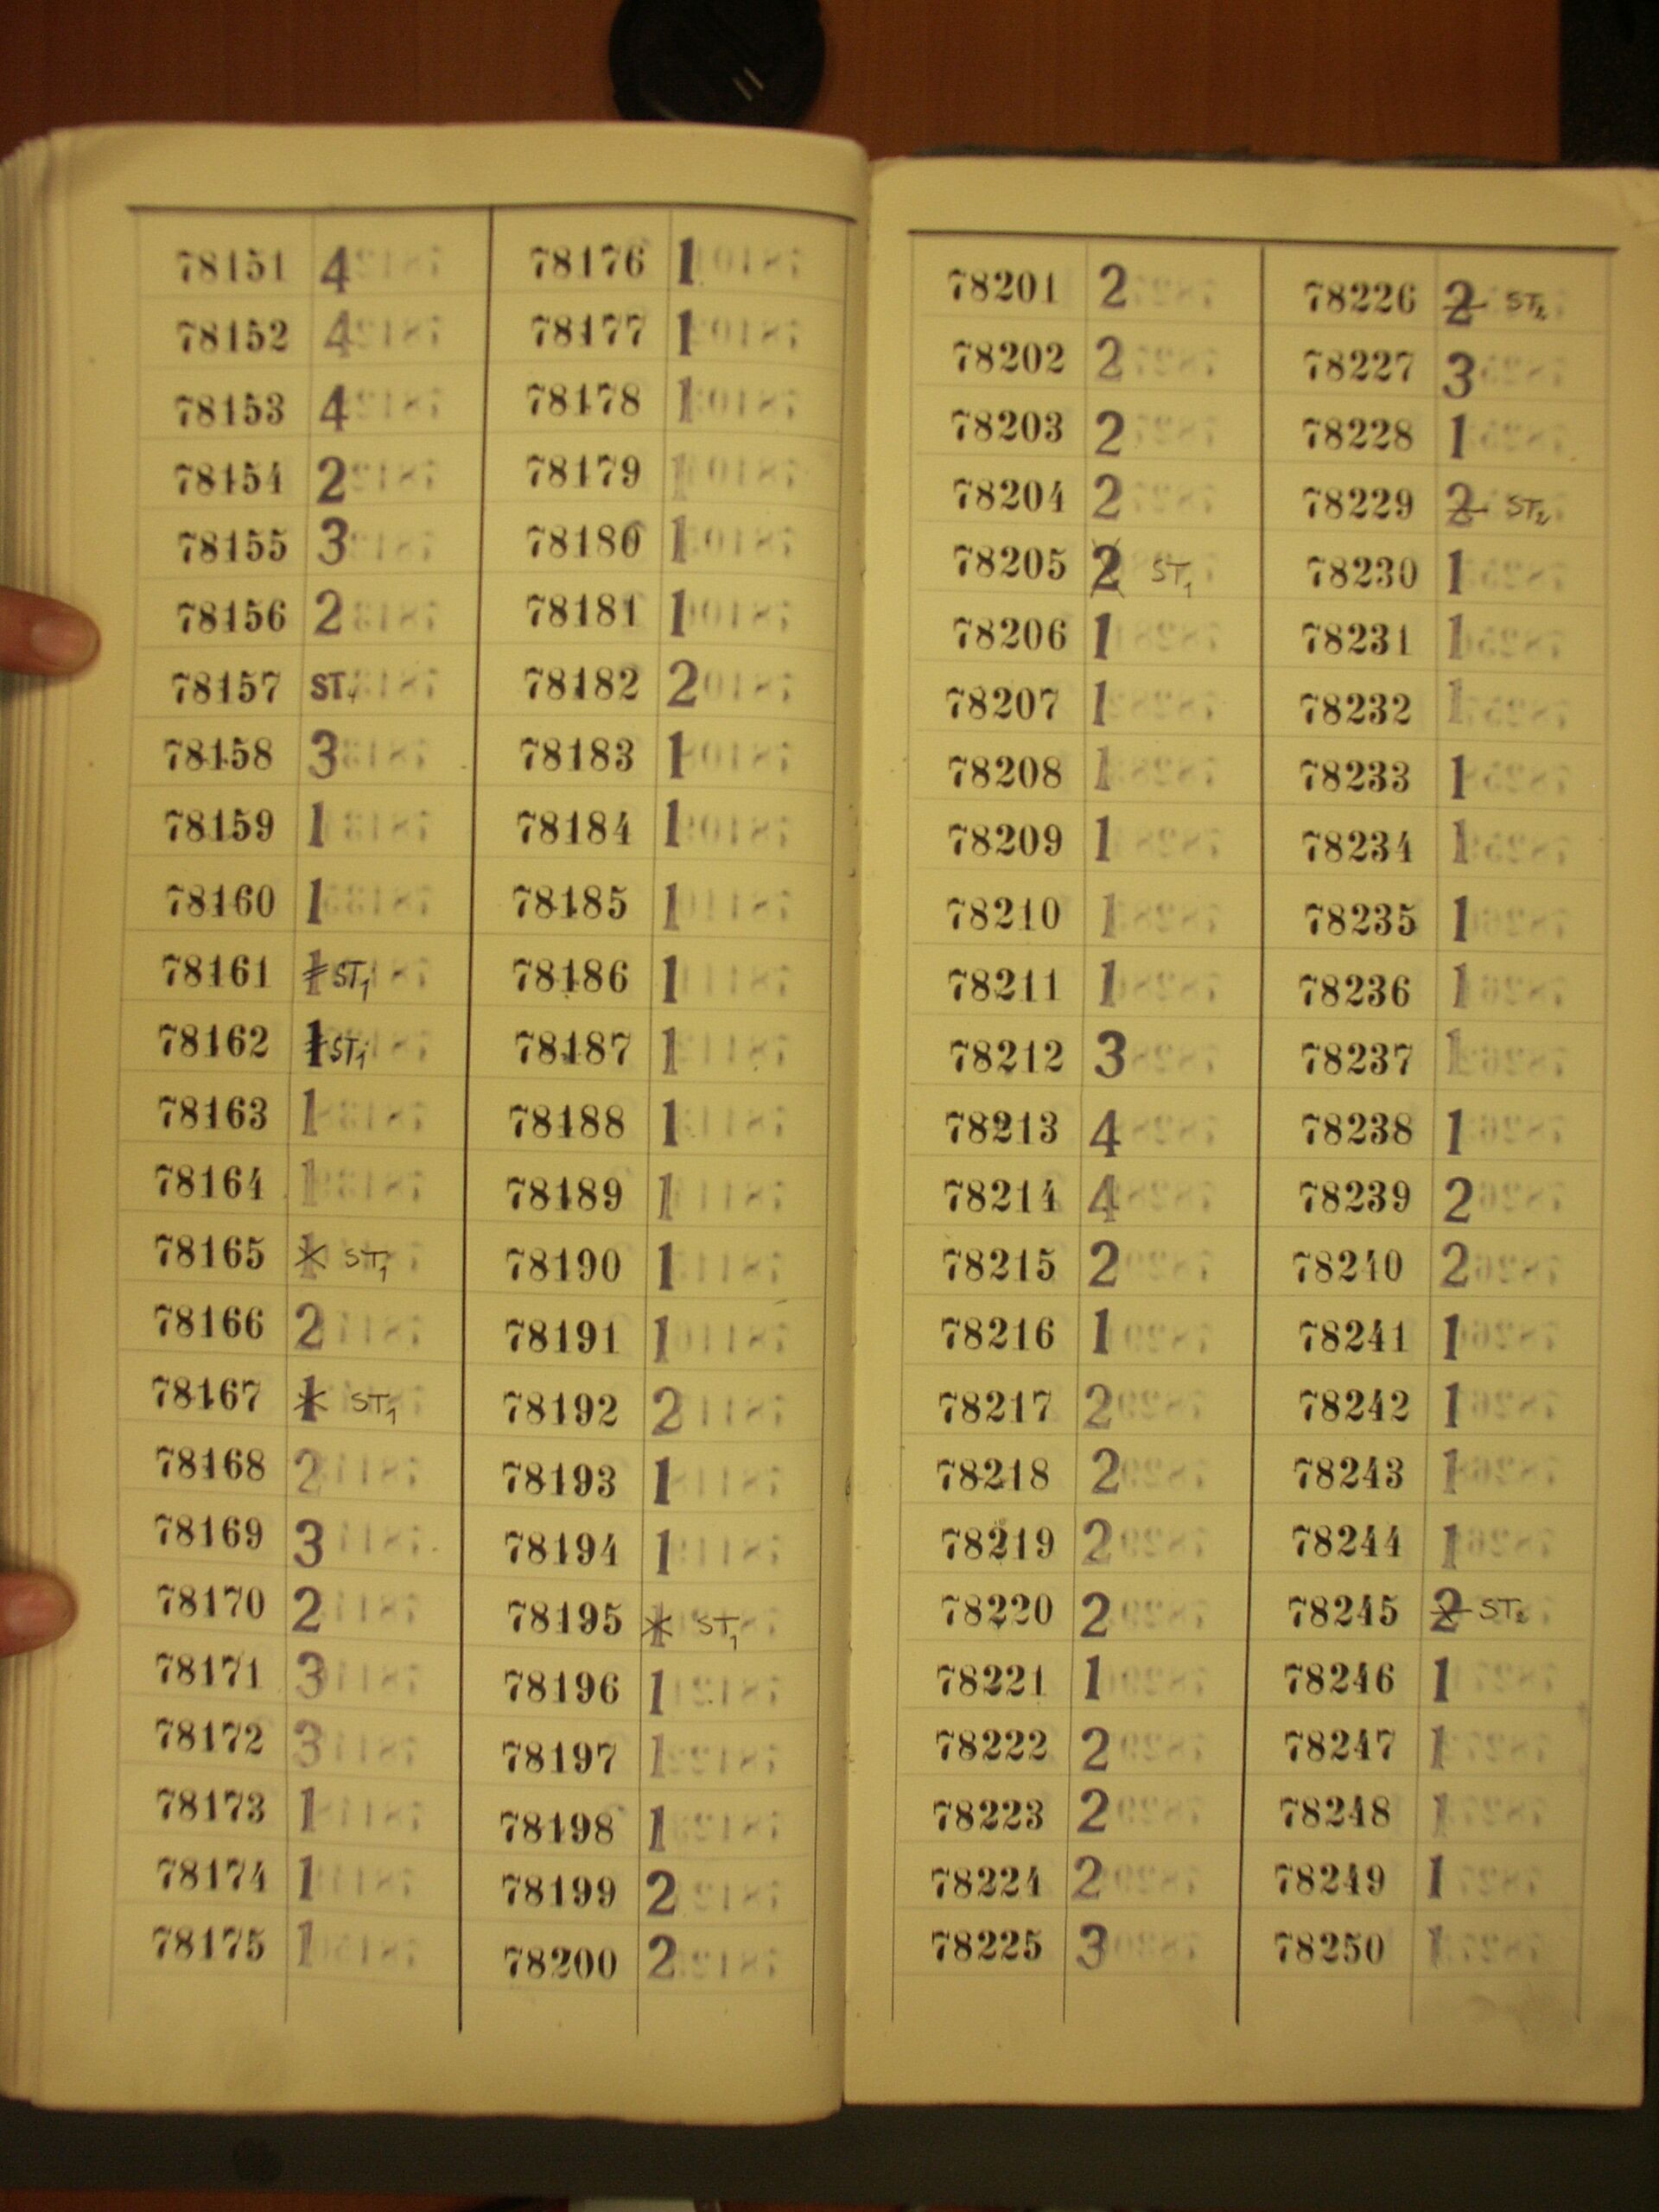 78151 4
78152 4
78153 4
78154 2
78155 3
78156 2
78157 ST1
78158 3
78159 1
78160 1
78161 1 ST1
78162 1 ST1
78163 1
78164 1
78165 1 ST1
78166 2
78167 1 ST1
78168 2
78169 3
78170 2
78171 3
78172 3
78173 1
78174 1
78175 1
78176 1
78177 1
78178 1
78179 1
78180 1
78181 1
78182 2
78183 1
78184 1
78185 1
78186 1
78187 1
78188 1
78189 1
78190 1
78191 1
78192 2
78193 1
78194 1
78195 1 ST1
78196 1
78197 1
78198 1
78199 2
78200 2
78201 2
78202 2
78203 2
78204 2
78205 2 ST1
78206 1
78207 1
78208 1
78209 1
78210 1
78211 1
78212 3
78213 4
78214 4
78215 2
78216 1
78217 2
78218 2
78219 2
78220 2
78221 1
78222 2
78223 2
78224 2
78225 3
78226 2 ST2
78227 3
78228 1
78229 2 ST2
78230 1
78231 1
78232 1
78233 1
78234 1
78235 1
78236 1
78237 1
78238 1
78239 2
78240 2
78241 1
78242 1
78243 1
78244 1
78245 2 ST2
78246 1
78247 1
78248 1
78249 1
78250 1